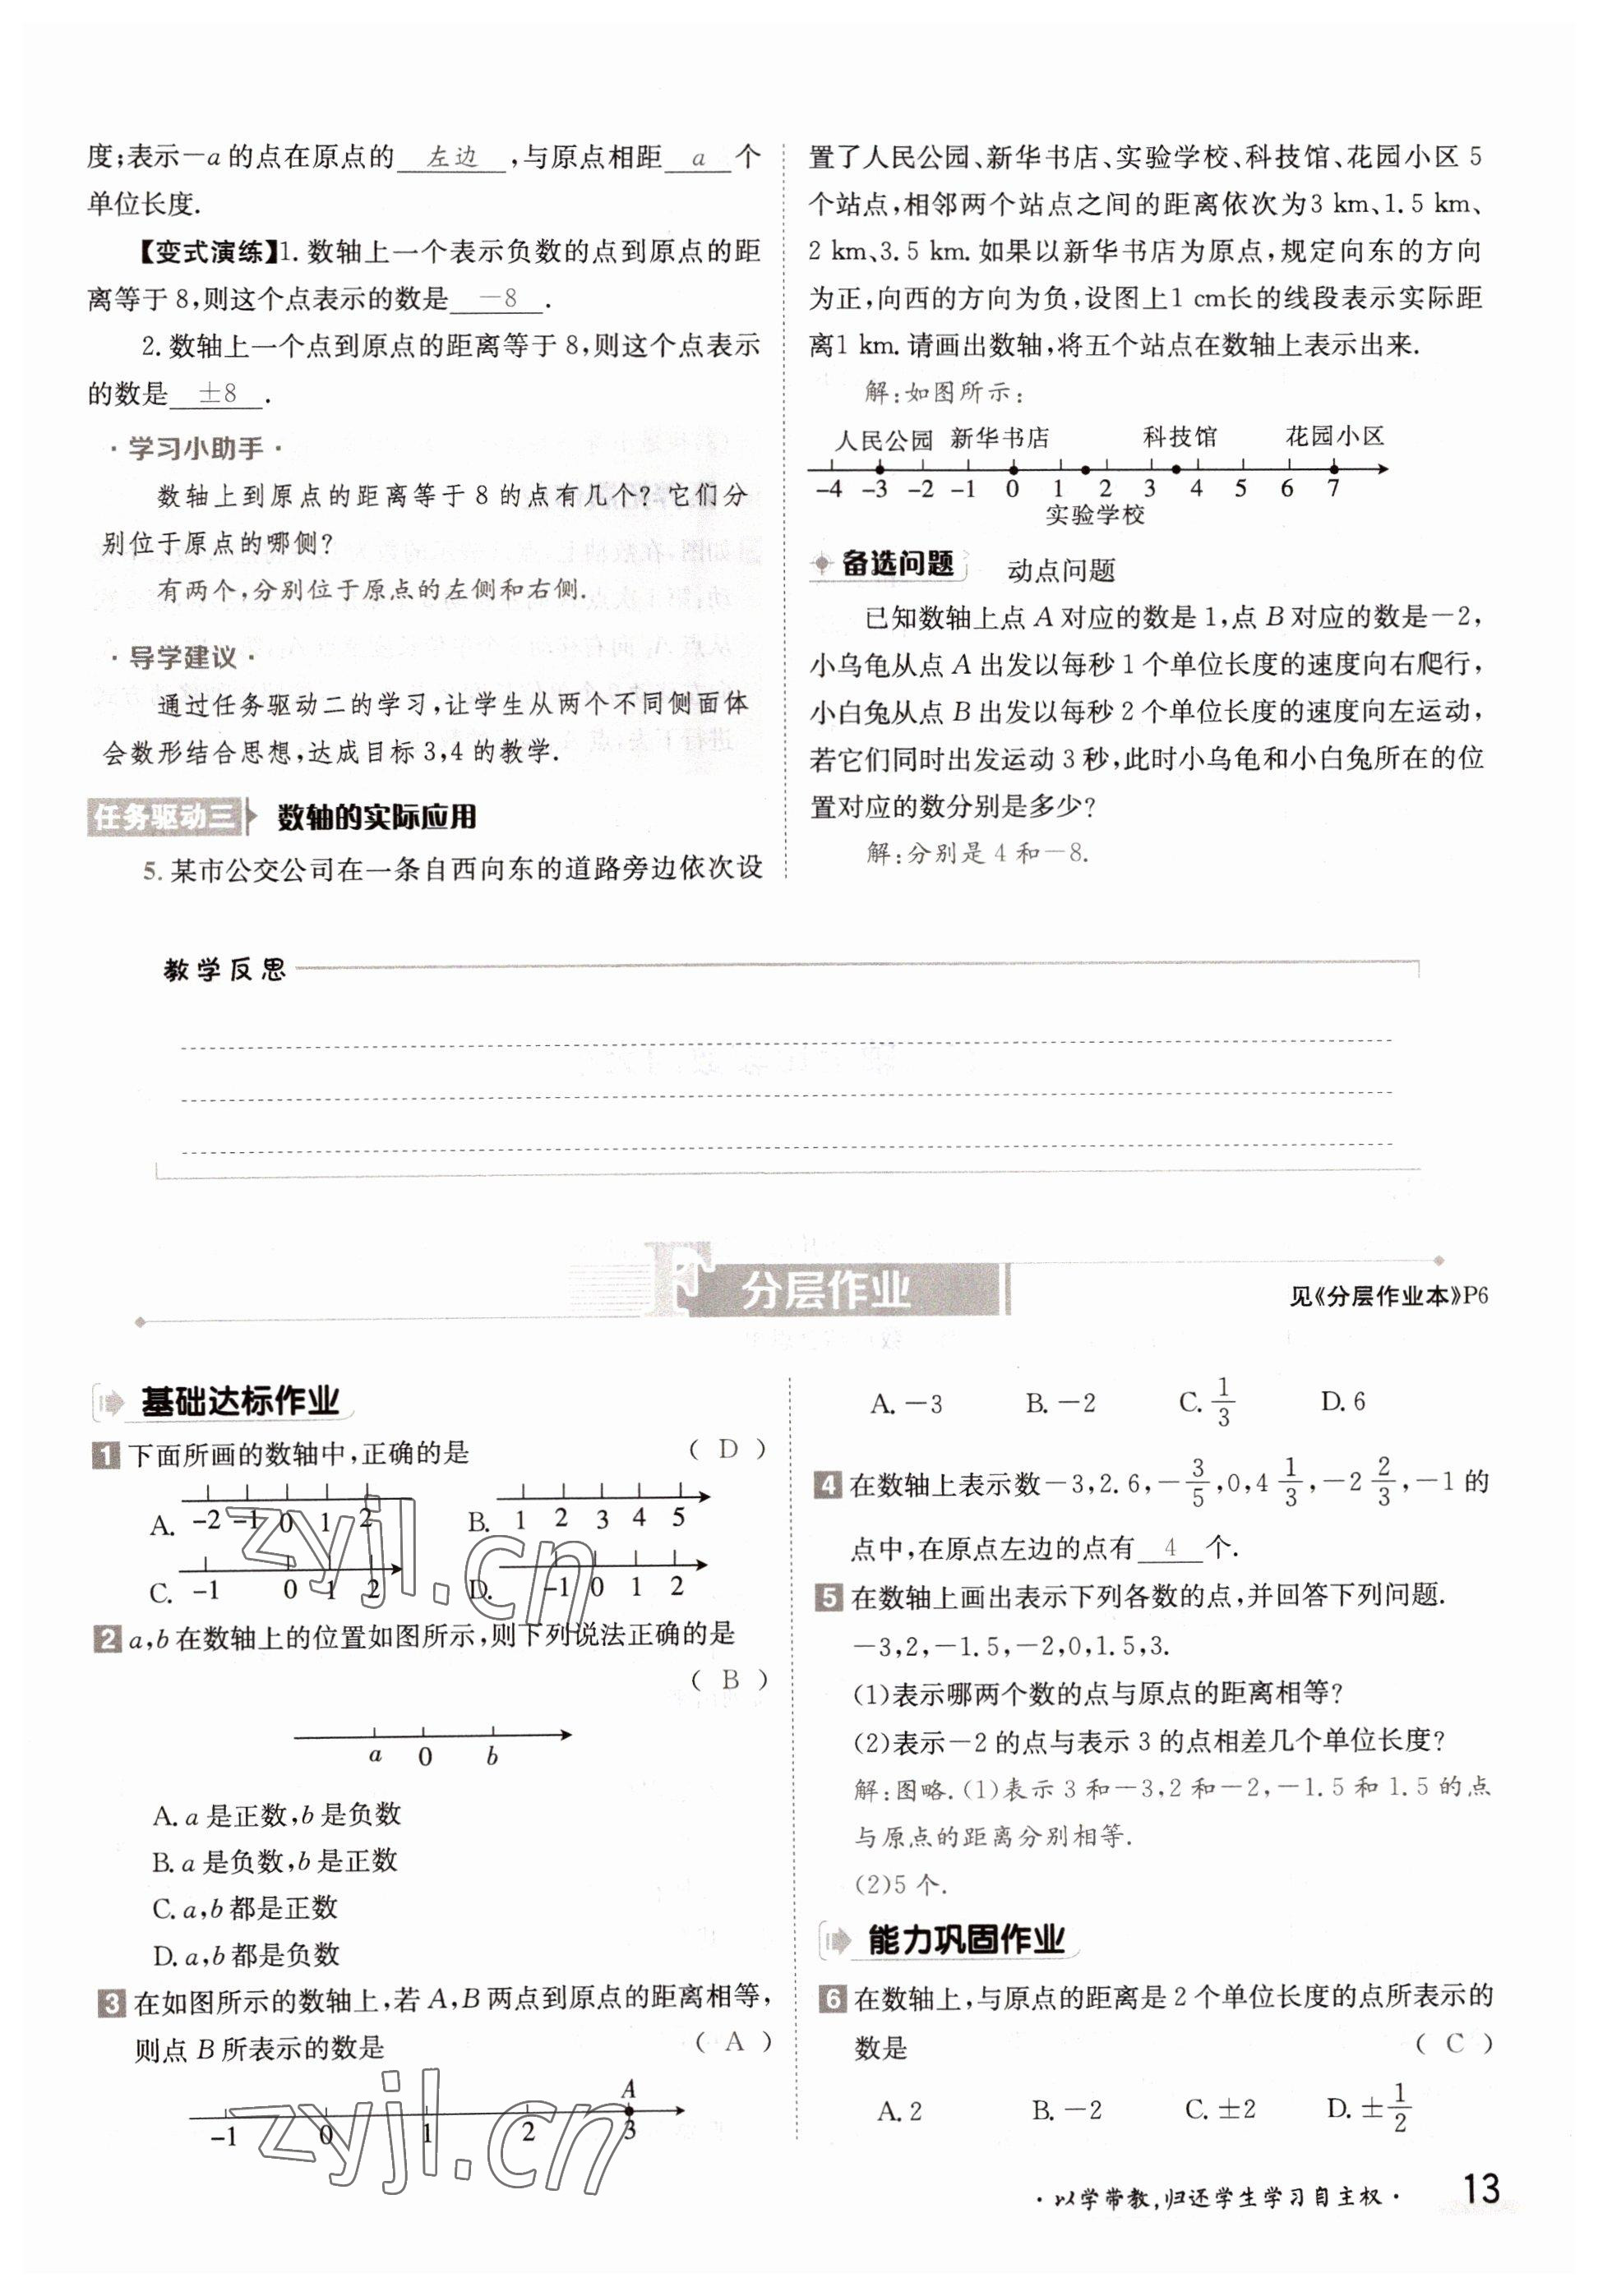 度;表示－a的点在原点的 左边 ,与原点相距 a 个
单位长度.
【变式演练】1.数轴上一个表示负数的点到原点的距
离等于8,则这个点表示的数是 －8 .
2.数轴上一个点到原点的距离等于8,则这个点表示
的数是 ±8 .
·学习小助手·
数轴上到原点的距离等于8的点有几个?它们分
别位于原点的哪侧?
有两个,分别位于原点的左侧和右侧.
·导学建议·
通过任务驱动二的学习,让学生从两个不同侧面体
会数形结合思想,达成目标3,4的教学.
任务驱动三 数轴的实际应用
5.某市公交公司在一条自西向东的道路旁边依次设
置了人民公园、新华书店、实验学校、科技馆、花园小区5
个站点,相邻两个站点之间的距离依次为3 km、1.5 km、
2 km、3.5 km.如果以新华书店为原点,规定向东的方向
为正,向西的方向为负,设图上1 cm长的线段表示实际距
离1 km.请画出数轴,将五个站点在数轴上表示出来.
解:如图所示:
人民公园 新华书店 科技馆 花园小区
-4 -3 -2 -1 0 1 2 3 4 5 6 7
实验学校
备选问题 动点问题
已知数轴上点A对应的数是1,点B对应的数是－2,
小乌龟从点A出发以每秒1个单位长度的速度向右爬行,
小白兔从点B出发以每秒2个单位长度的速度向左运动,
若它们同时出发运动3秒,此时小乌龟和小白兔所在的位
置对应的数分别是多少?
解:分别是4和－8.
教学反思
分层作业
见《分层作业本》P6
基础达标作业
1 下面所画的数轴中,正确的是 ( D )
A. -2 -1 0 1 2 B. 1 2 3 4 5
C. -1 0 1 2 D. -1 0 1 2
2 a,b在数轴上的位置如图所示,则下列说法正确的是
( B )
a 0 b
A. a是正数,b是负数
B. a是负数,b是正数
C. a,b都是正数
D. a,b都是负数
3 在如图所示的数轴上,若A,B两点到原点的距离相等,
则点B所表示的数是 ( A )
A
-1 0 1 2 3
A. －3 B. －2 C. 1/3 D. 6
4 在数轴上表示数－3,2.6,－3/5,0,4 1/3,－2 2/3,－1的
点中,在原点左边的点有 4 个.
5 在数轴上画出表示下列各数的点,并回答下列问题.
－3,2,－1.5,－2,0,1.5,3.
(1)表示哪两个数的点与原点的距离相等?
(2)表示－2的点与表示3的点相差几个单位长度?
解:图略.(1)表示3和－3,2和－2,－1.5和1.5的点
与原点的距离分别相等.
(2)5个.
能力巩固作业
6 在数轴上,与原点的距离是2个单位长度的点所表示的
数是 ( C )
A. 2 B. －2 C. ±2 D. ±1/2
·以学带教,归还学生学习自主权· 13
zyjl.cn
zyjl.cn